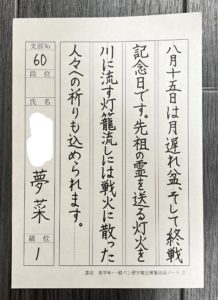 八月十五日は月遅れ盆、そして終戦
記念日です。先祖の霊を送る灯火を
川に流す灯籠流しには戦火に散った
人々への祈りも込められます。
支部No.
60
段位
氏名
夢菜
級位
1